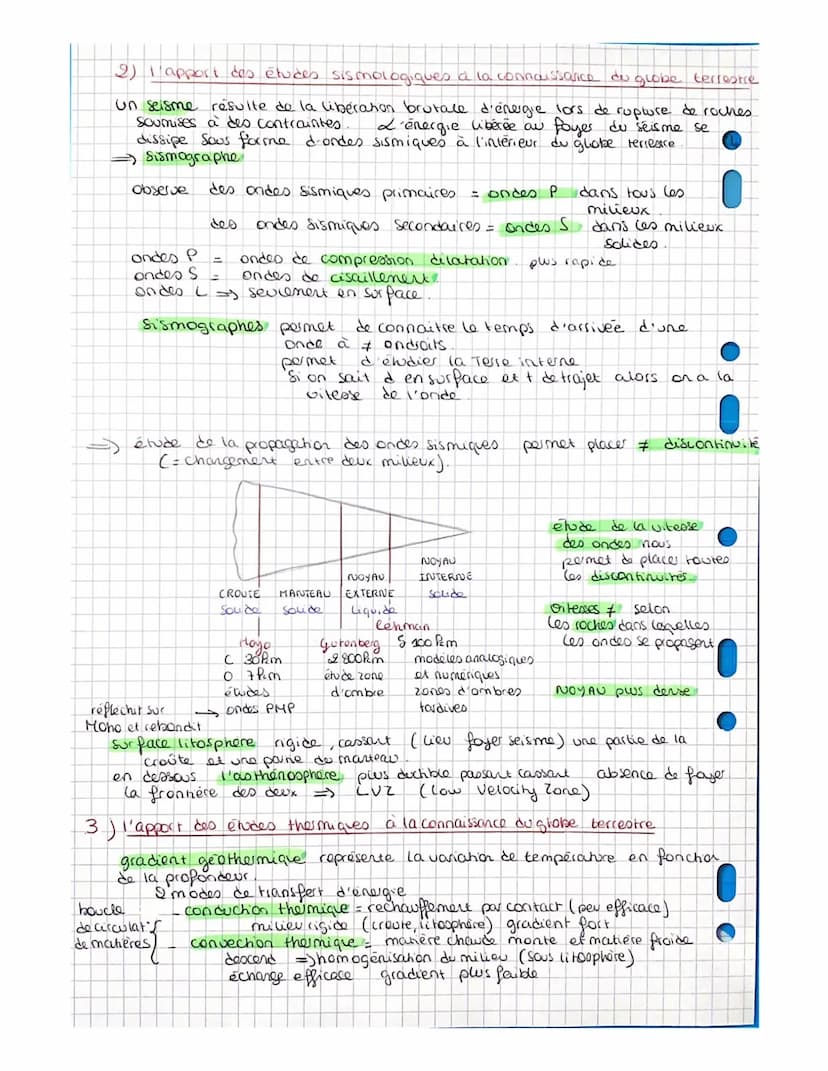 2) l'apport des études sismologiques à la connaissance du globe terrestre
un seisme résulte de la libération brutale d'énergie lors de rupture de roches
soumises à des contraintes. L'énergie libérée au foyer du séisme se
dissipe sous forme d'ondes sismiques à l'intérieur du globe terrestre
=> Sismographe
observe des ondes sismiques primaires = ondes P dans tous les
milieux
des ondes sismiques secondaires = ondes S dans les milieux
solides.
ondes P = ondes de compression dilatation. plus rapide
ondes S = ondes de cisaillement.
ondes L => seulement en surface.
Sismographes permet de connaitre le temps d'arrivée d'une
onde à ≠ endroits.
permet d'étudier la Terre interne
Si on sait d en surface et t de trajet alors on a la
vitesse de l'onde.
=> étude de la propagation des ondes sismiques permet placer ≠ discontinuité
(= changement entre deux milieux).
étude de la vitesse
des ondes nous
permet de placer toutes
les discontinuités.
vitesses ≠ selon
les roches dans laquelles
les ondes se propagent
NOYAU plus dense
CROUTE MANTEAU NOYAU EXTERNE NOYAU INTERNE
solide solide liquide solide
Lehman
Moyo Gutenberg 5 100 km
C 30km 2 900km modèles analogiques
O 7km étude zone et numériques
études d'ombre zones d'ombres
réflechit sur -> ondes PMP tardives
Moho et rebondit
surface litosphère rigide, cassant (lieu foyer seisme) une partie de la
croûte et une partie du manteau.
en dessous l'asthénosphère plus ductible passant cassant absence de foyer
la frontière des deux => LVZ (low velocity zone)
3) l'apport des études thermiques à la connaissance du globe terrestre
gradient géothermique représente la variation de température en fonction
de la profondeur.
2 modes de transfert d'énergie
boucle - conduction thermique = rechauffement par contact (peu efficace)
de circulat° milieu rigide (croute, litosphère) gradient fort
de matières - convection thermique = matière chaude monte et matière froide
descend => homogénisation du milieu (sous litosphère)
échange efficace gradient plus faible